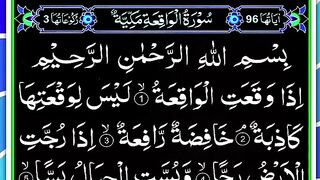 اٰيَاتُهَا 96 سُوْرَةُ الْوَاقِعَةِ مَكِّيَّةٌ رُكُوْعَاتُهَا 3
بِسْمِ اللّٰهِ الرَّحْمٰنِ الرَّحِيْمِ
اِذَا وَقَعَتِ الْوَاقِعَةُ ۙ‏ ① لَيْسَ لِوَقْعَتِهَا
كَاذِبَةٌ ۘ‏ ② خَافِضَةٌ رَّافِعَةٌ ۙ‏ ③ اِذَا رُجَّتِ
الْاَرْضُ رَجًّا ۙ‏ ④ وَّبُسَّتِ الْجِبَالُ بَسًّا ۙ‏ ⑤